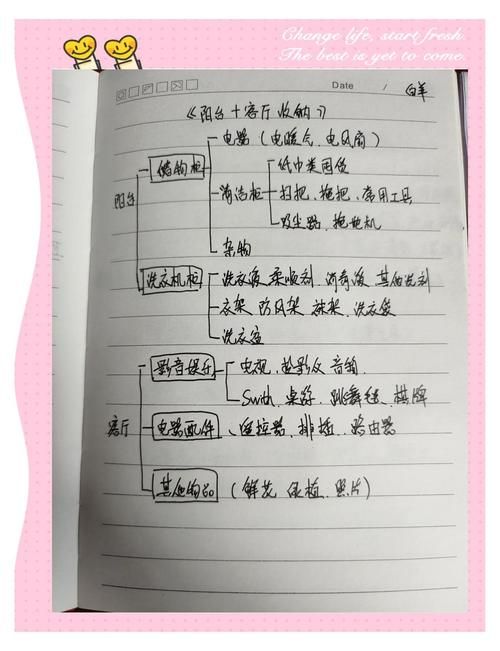 Change life, start fresh.
The best is yet to come.
Date / 白羊
《阳台+客厅收纳》
电器（电暖气、电风扇）
储物柜
纸巾类囤货
阳台
清洁柜 扫把、拖把、常用工具
吸尘器、拖地机
杂物
洗衣机柜 洗衣液 柔顺剂 消毒液 其他洗剂
衣架 防风架 袜架、洗衣袋
洗衣盆
影音娱乐 电视、投影仪 音箱
Swith、桌游、跳舞毯、棋牌
客厅 电器配件、遥控器、排插、路由器
其他物品（鲜花 绿植、照片）